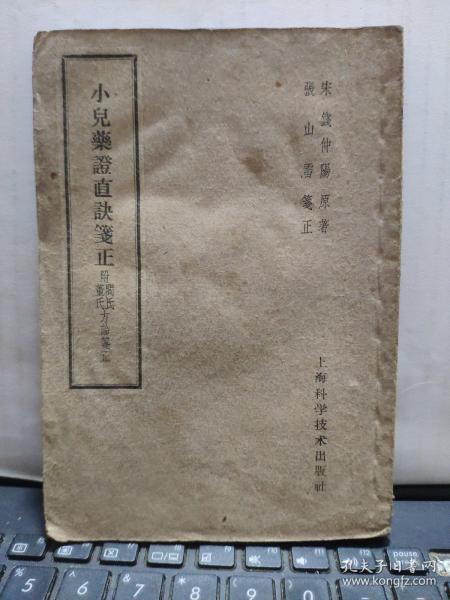 宋 錢仲陽 原著
張山雷 箋正
小兒藥證直訣箋正
附閻氏董氏方論箋正
上海科学技术出版社
pause
%
5
6
7
8
9
0
孔夫子旧书网